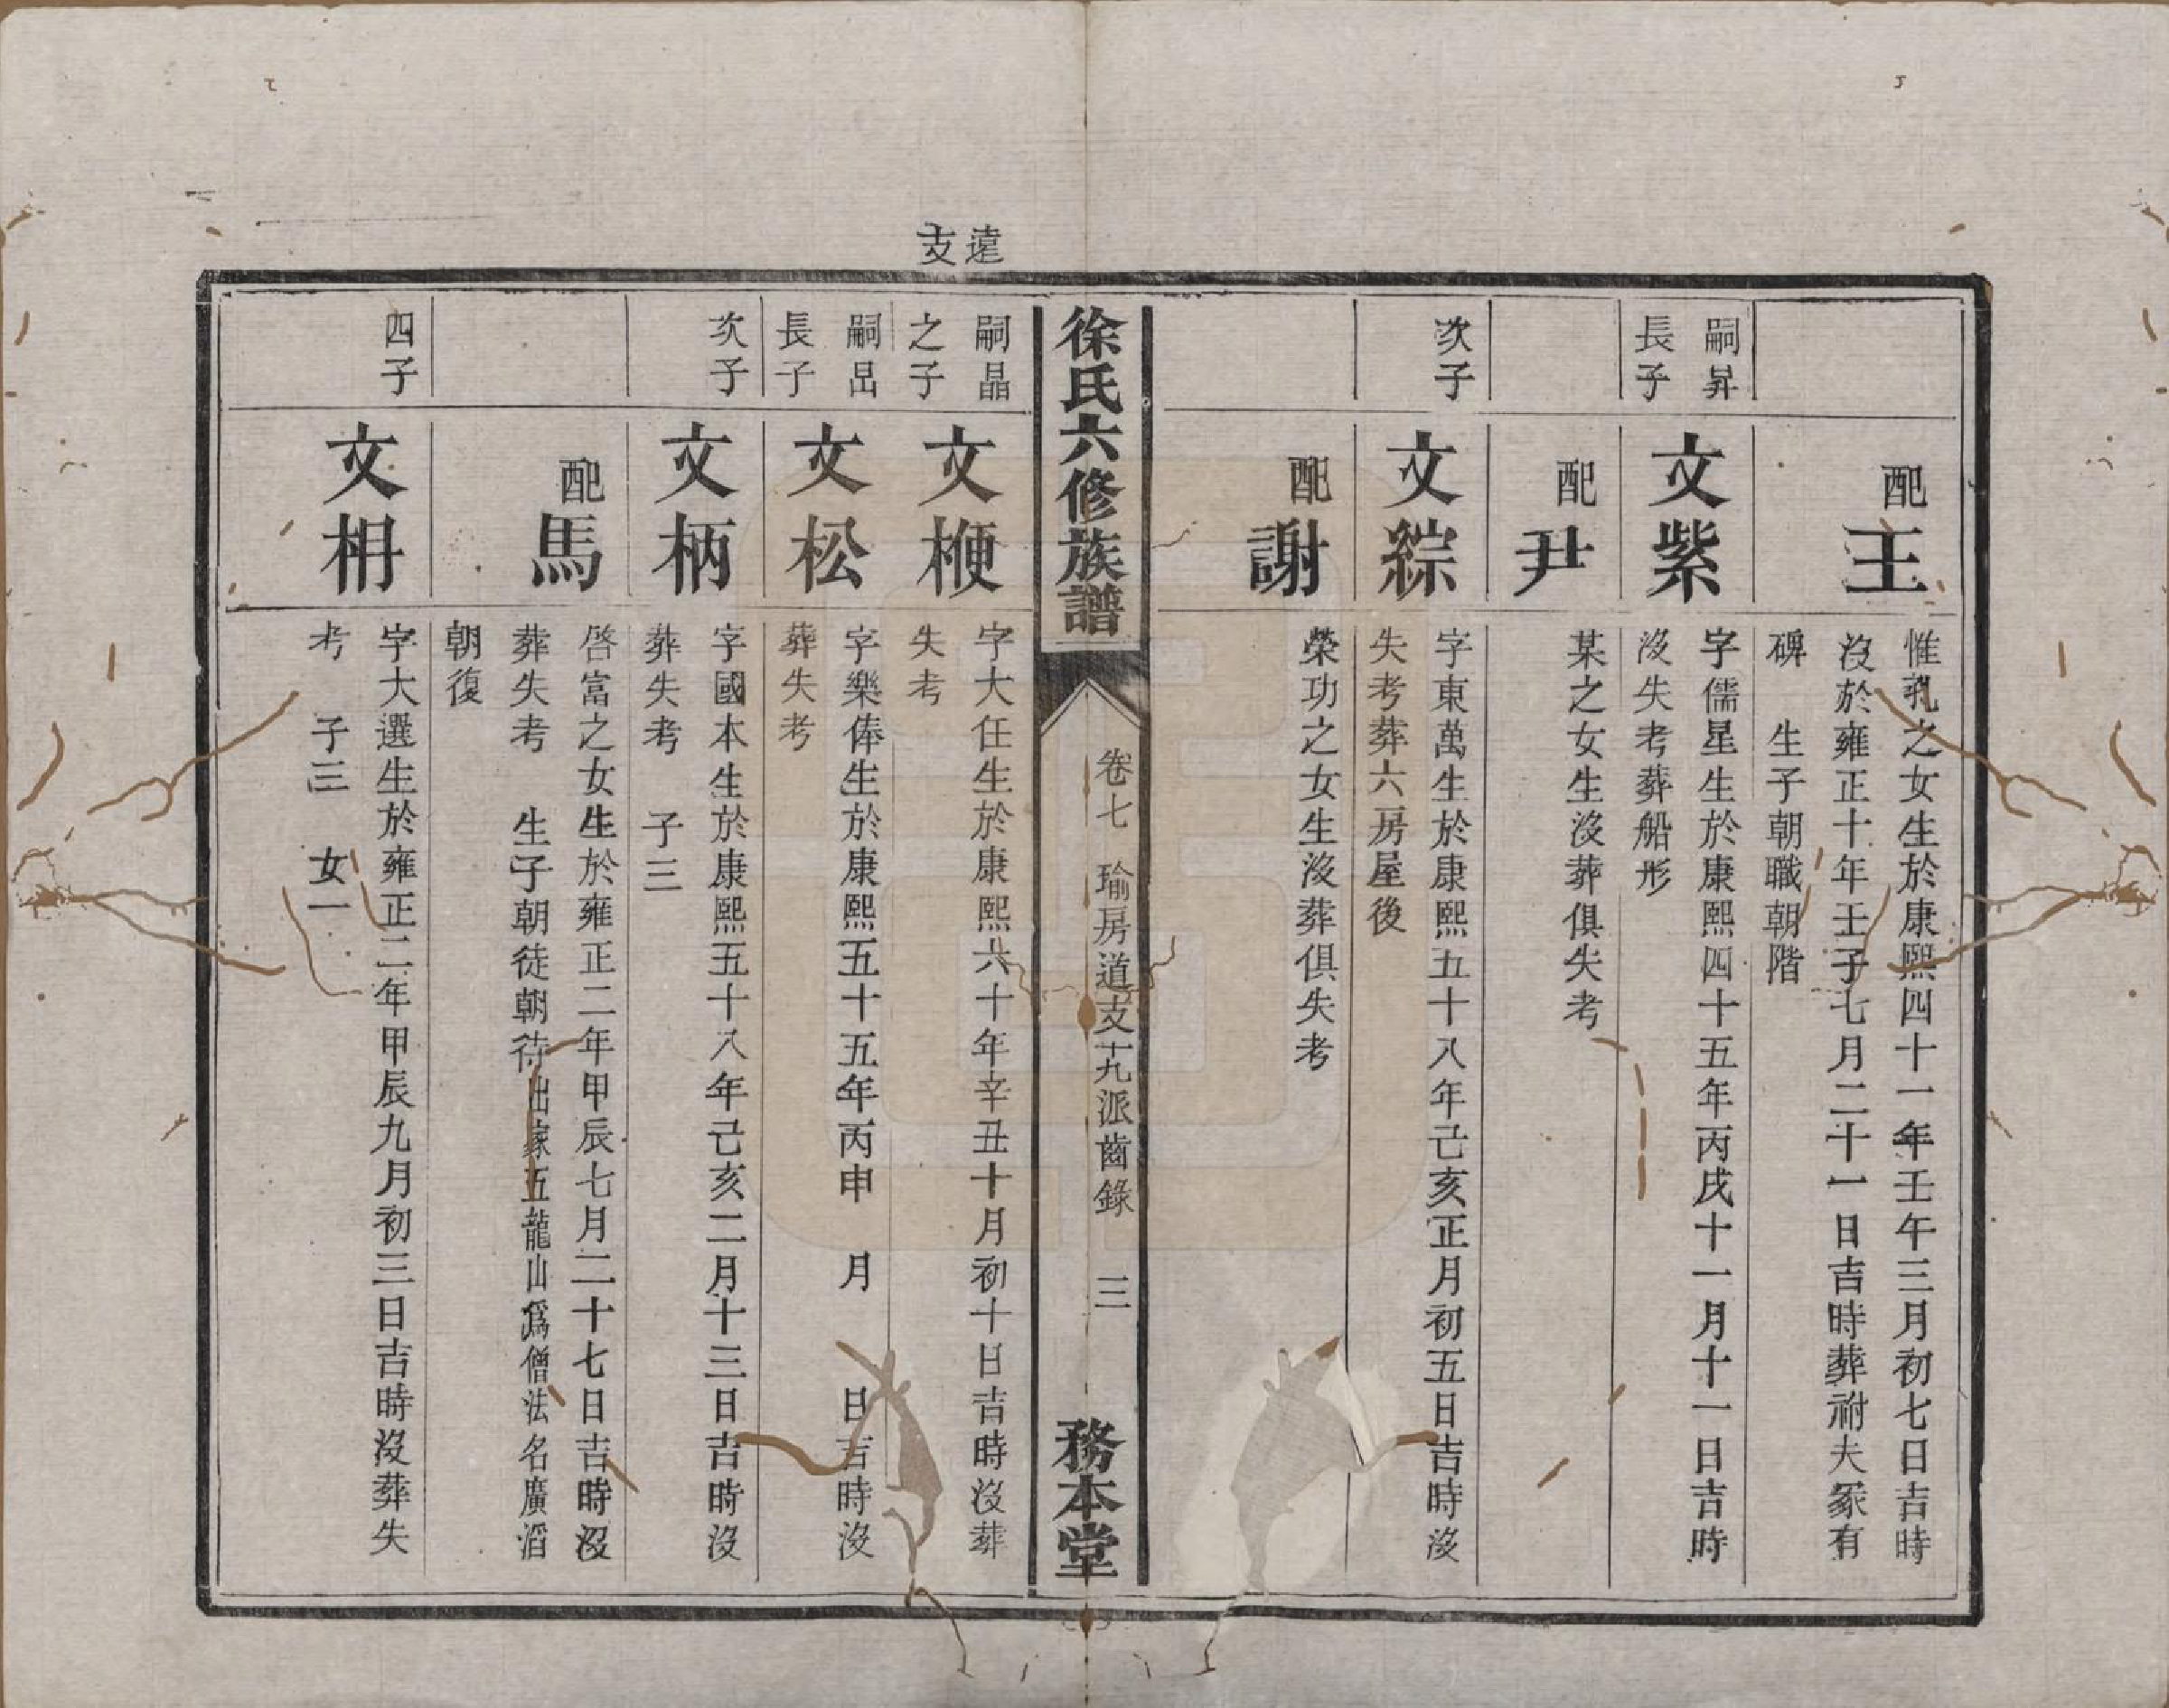 配王
惟乳之女生於康熙四十一年壬午三月初七日吉時
沒於雍正十年壬子七月二十一日吉時葬祔夫冢有
碑　生子朝職朝階
嗣昇
長子
文紫
字儒星生於康熙四十五年丙戌十一月十一日吉時
沒失考葬船形
配尹
某之女生沒葬俱失考
次子
文綜
字東萬生於康熙五十八年己亥正月初五日吉時沒
失考葬六房屋後
配謝
榮功之女生沒葬俱失考
徐氏六修族譜
卷七　瑜房道支十九派齒錄　三
務本堂
遠支
嗣晶
之子
文楩
字大任生於康熙六十年辛丑十月初十日吉時沒葬
失考
嗣昌
長子
文松
字樂俸生於康熙五十五年丙申　月　　日吉時沒
葬失考
次子
文柄
字國本生於康熙五十八年己亥二月十三日吉時沒
葬失考　子三
配馬
啓富之女生於雍正二年甲辰七月二十七日吉時沒
葬失考　生子朝徒朝待出家五龍山爲僧法名廣滔
朝復
四子
文枏
字大選生於雍正二年甲辰九月初三日吉時沒葬失
考　子三　女一